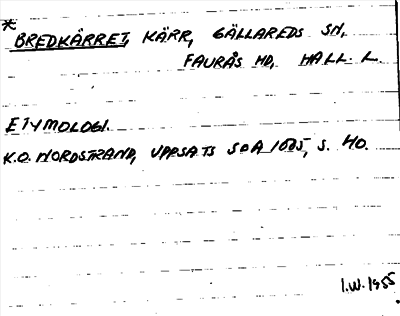 *
BREDKÄRRET, KÄRR, GÄLLAREDS SN,
FAURÅS HD, HALL. L.
ETYMOLOGI.
K.O. NORDSTRAND, UPPSATS SOA 1685, S. 40.
I.W. 1955